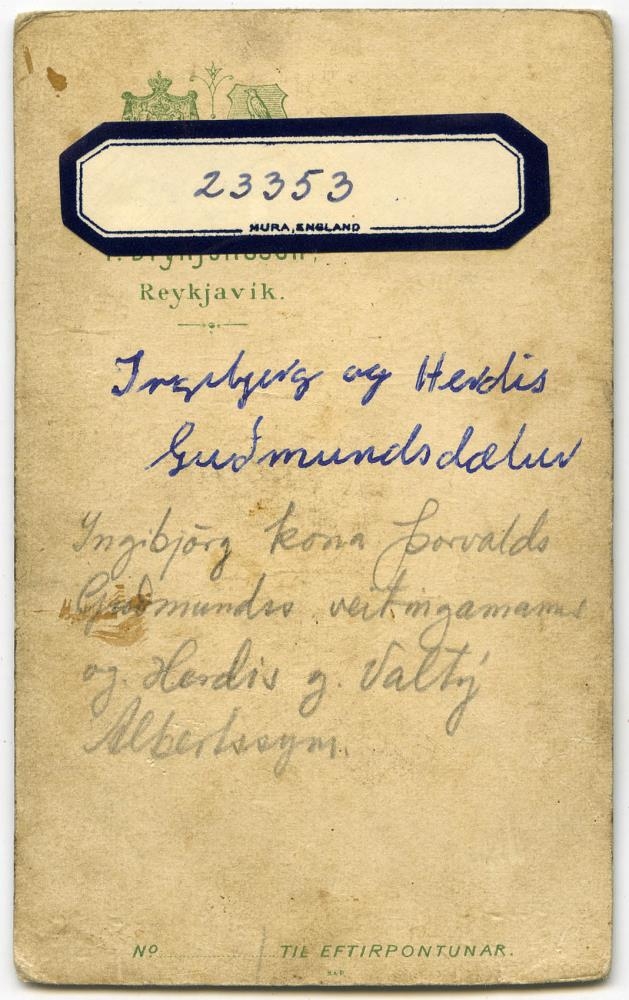 23353
MURA, ENGLAND
Reykjavík.
Ingibjerg og Herdis
Guðmundsdætur
Ingibjörg kona Þorvalds
Guðmundss veitingamanns
og Herdis g. Valtý
Albertssyni.
No TIL EFTIRPONTUNAR.